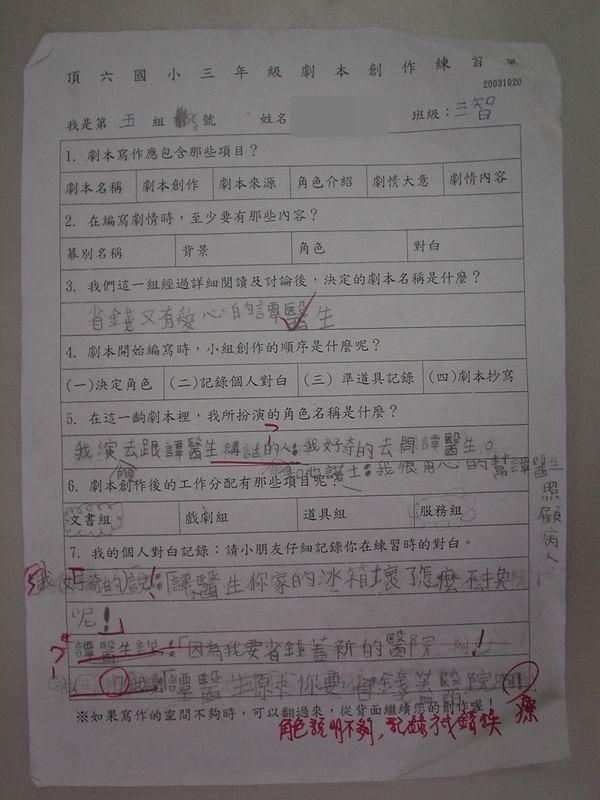 頂六國小三年級劇本創作練習單
20031020
我是第 五 組 號 姓名 班級：三智
1. 劇本寫作應包含那些項目？
劇本名稱 劇本創作 劇本來源 角色介紹 劇情大意 劇情內容
2. 在編寫劇情時，至少要有那些內容？
幕別名稱 背景 角色 對白
3. 我們這一組經過詳細閱讀及討論後，決定的劇本名稱是什麼？
省錢又有愛心的譚醫生
4. 劇本開始編寫時，小組創作的順序是什麼呢？
(一)決定角色 (二)記錄個人對白 (三) 準道具記錄 (四)劇本抄寫
5. 在這一齣劇本裡，我所扮演的角色名稱是什麼？
我演去跟譚醫生講話的人：我好奇的去問譚醫生。
護士：我很用心的幫譚醫生
照顧病人
6. 劇本創作後的工作分配有那些項目呢？
文書組 戲劇組 道具組 服務組
7. 我的個人對白記錄：請小朋友仔細記錄你在練習時的對白。
我好奇的說：「譚醫生你家的冰箱壞了怎麼不換
呢！」
譚醫生說：「因為我要省錢蓋新的醫院 ！
譚醫生原來你要省錢蓋醫院
療
※如果寫作的空間不夠時，可以翻過來，從背面繼續您的創作喔！
角色說明不夠，記錄